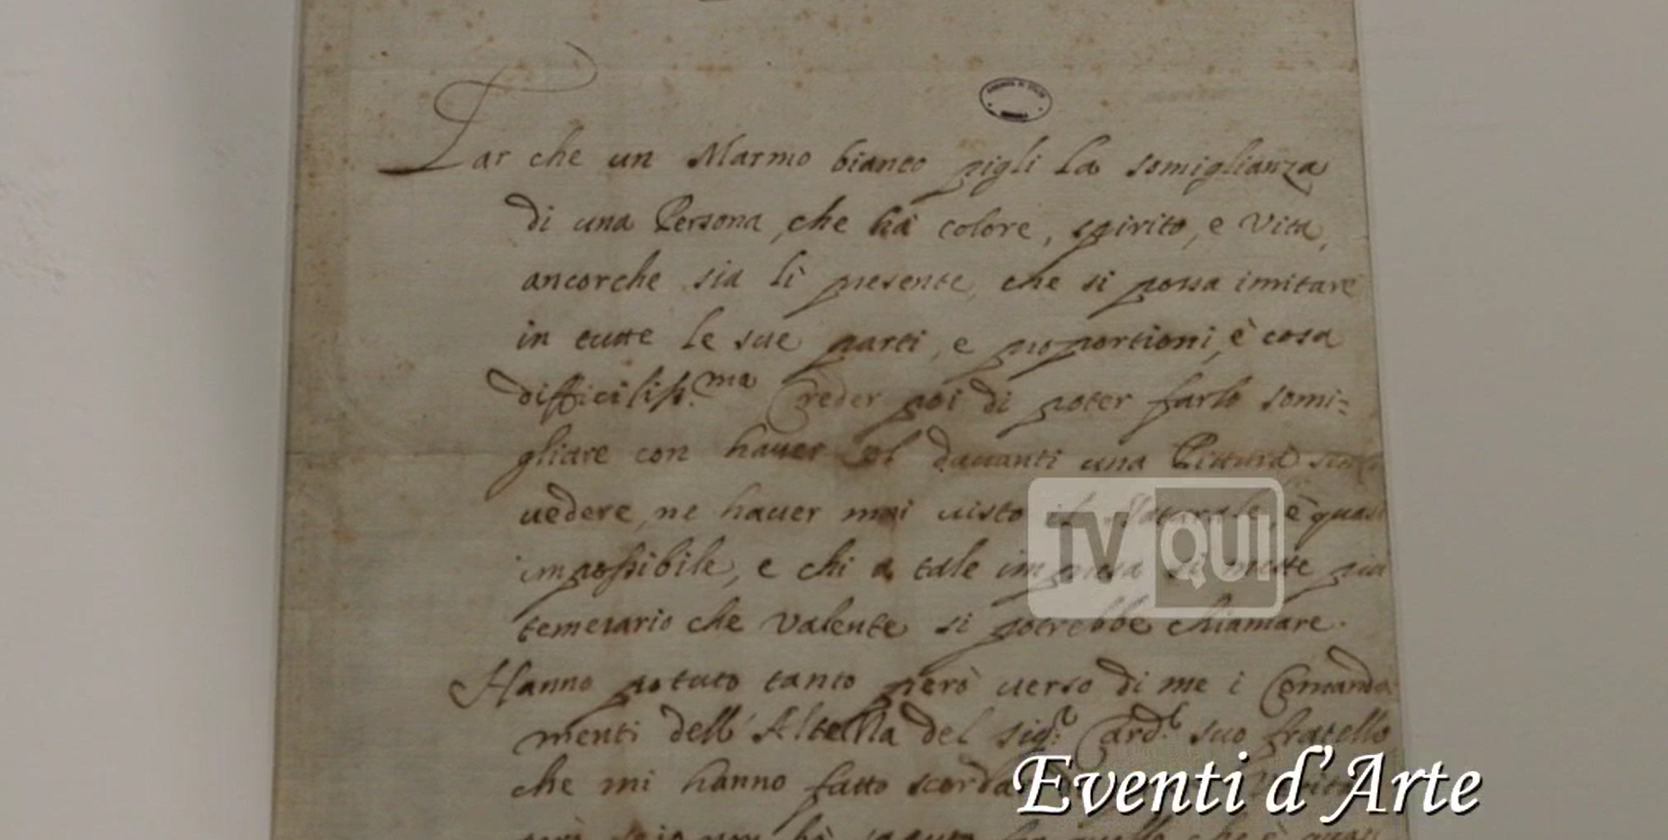 Far che un Marmo bianco pigli la somiglianza
di una Persona, che hà colore, spirito, e Vita,
ancorche sia lì presente, che si possa imitare
in tutte le sue parti, e proportioni, è cosa
difficiliss.ma Creder poi di poter farlo somi=
gliare con haver sol davanti una Pittura
vedere, ne haver mai visto il Naturale, è quasi
impossibile, e chi a tale impresa si mette più
temerario che valente si potrebbe chiamare.
Hanno potuto tanto però verso di me i Comanda
menti dell'Altezza del sig.r Card.l suo fratello
che mi hanno fatto
TV QUI
Eventi d'Arte